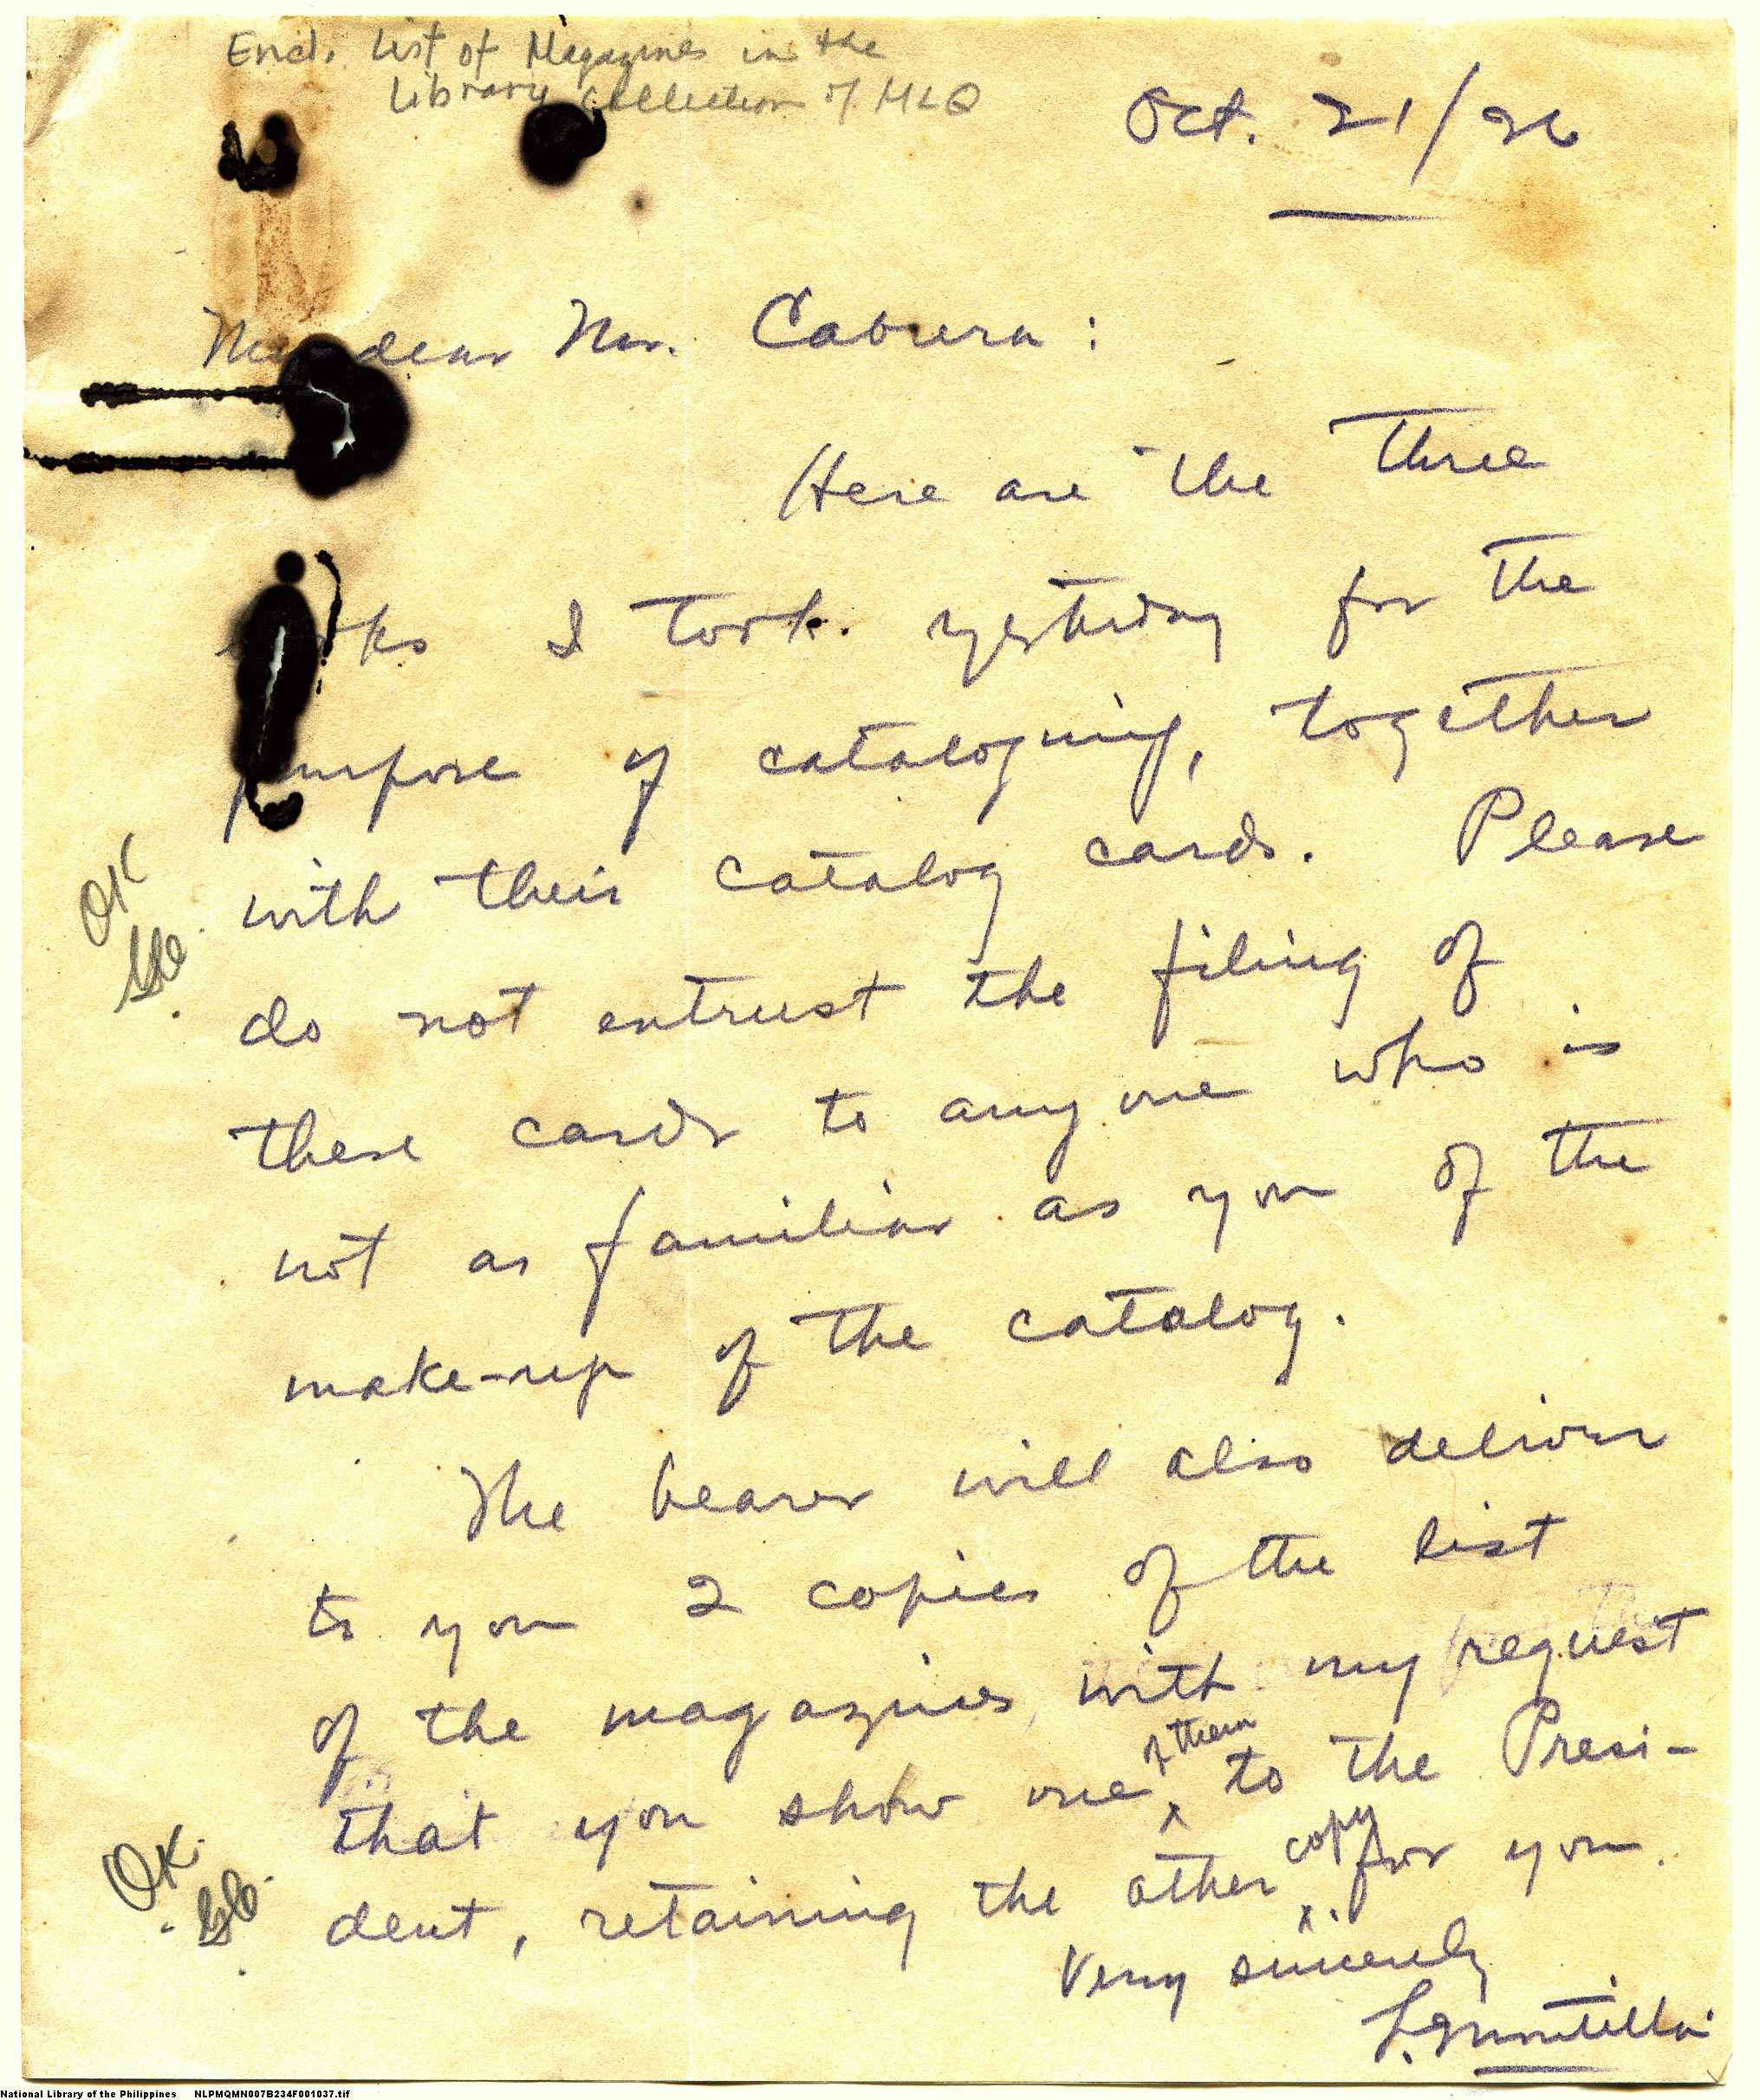 Encl. List of Magazines in the
Library Collection of MLQ
Oct. 21/26
My dear Mr. Cabrera:
Here are the three
books I took yesterday for the
purpose of cataloguing, together
with their catalog cards. Please
OK
do not entrust the filing of
these cards to anyone who is
not as familiar as you of the
make-up of the catalog.
The bearer will also deliver
to you 2 copies of the list
of the magazines, with my request
that you show one of them to the Presi-
OK.
dent, retaining the other copy for you.
Very sincerely
National Library of the Philippines NLPMQMN007B234F001037.tif